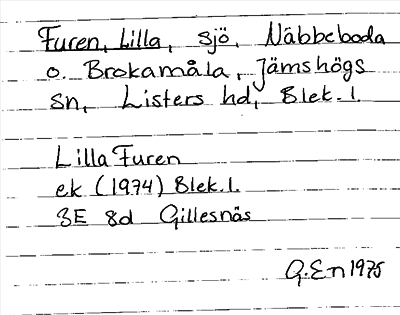 Furen, Lilla, sjö, Näbbeboda
o. Brokamåla, Jämshögs
sn, Listers hd, Blek. l.
Lilla Furen
ek (1974) Blek. l.
3E 8d Gillesnäs
G. En 1975